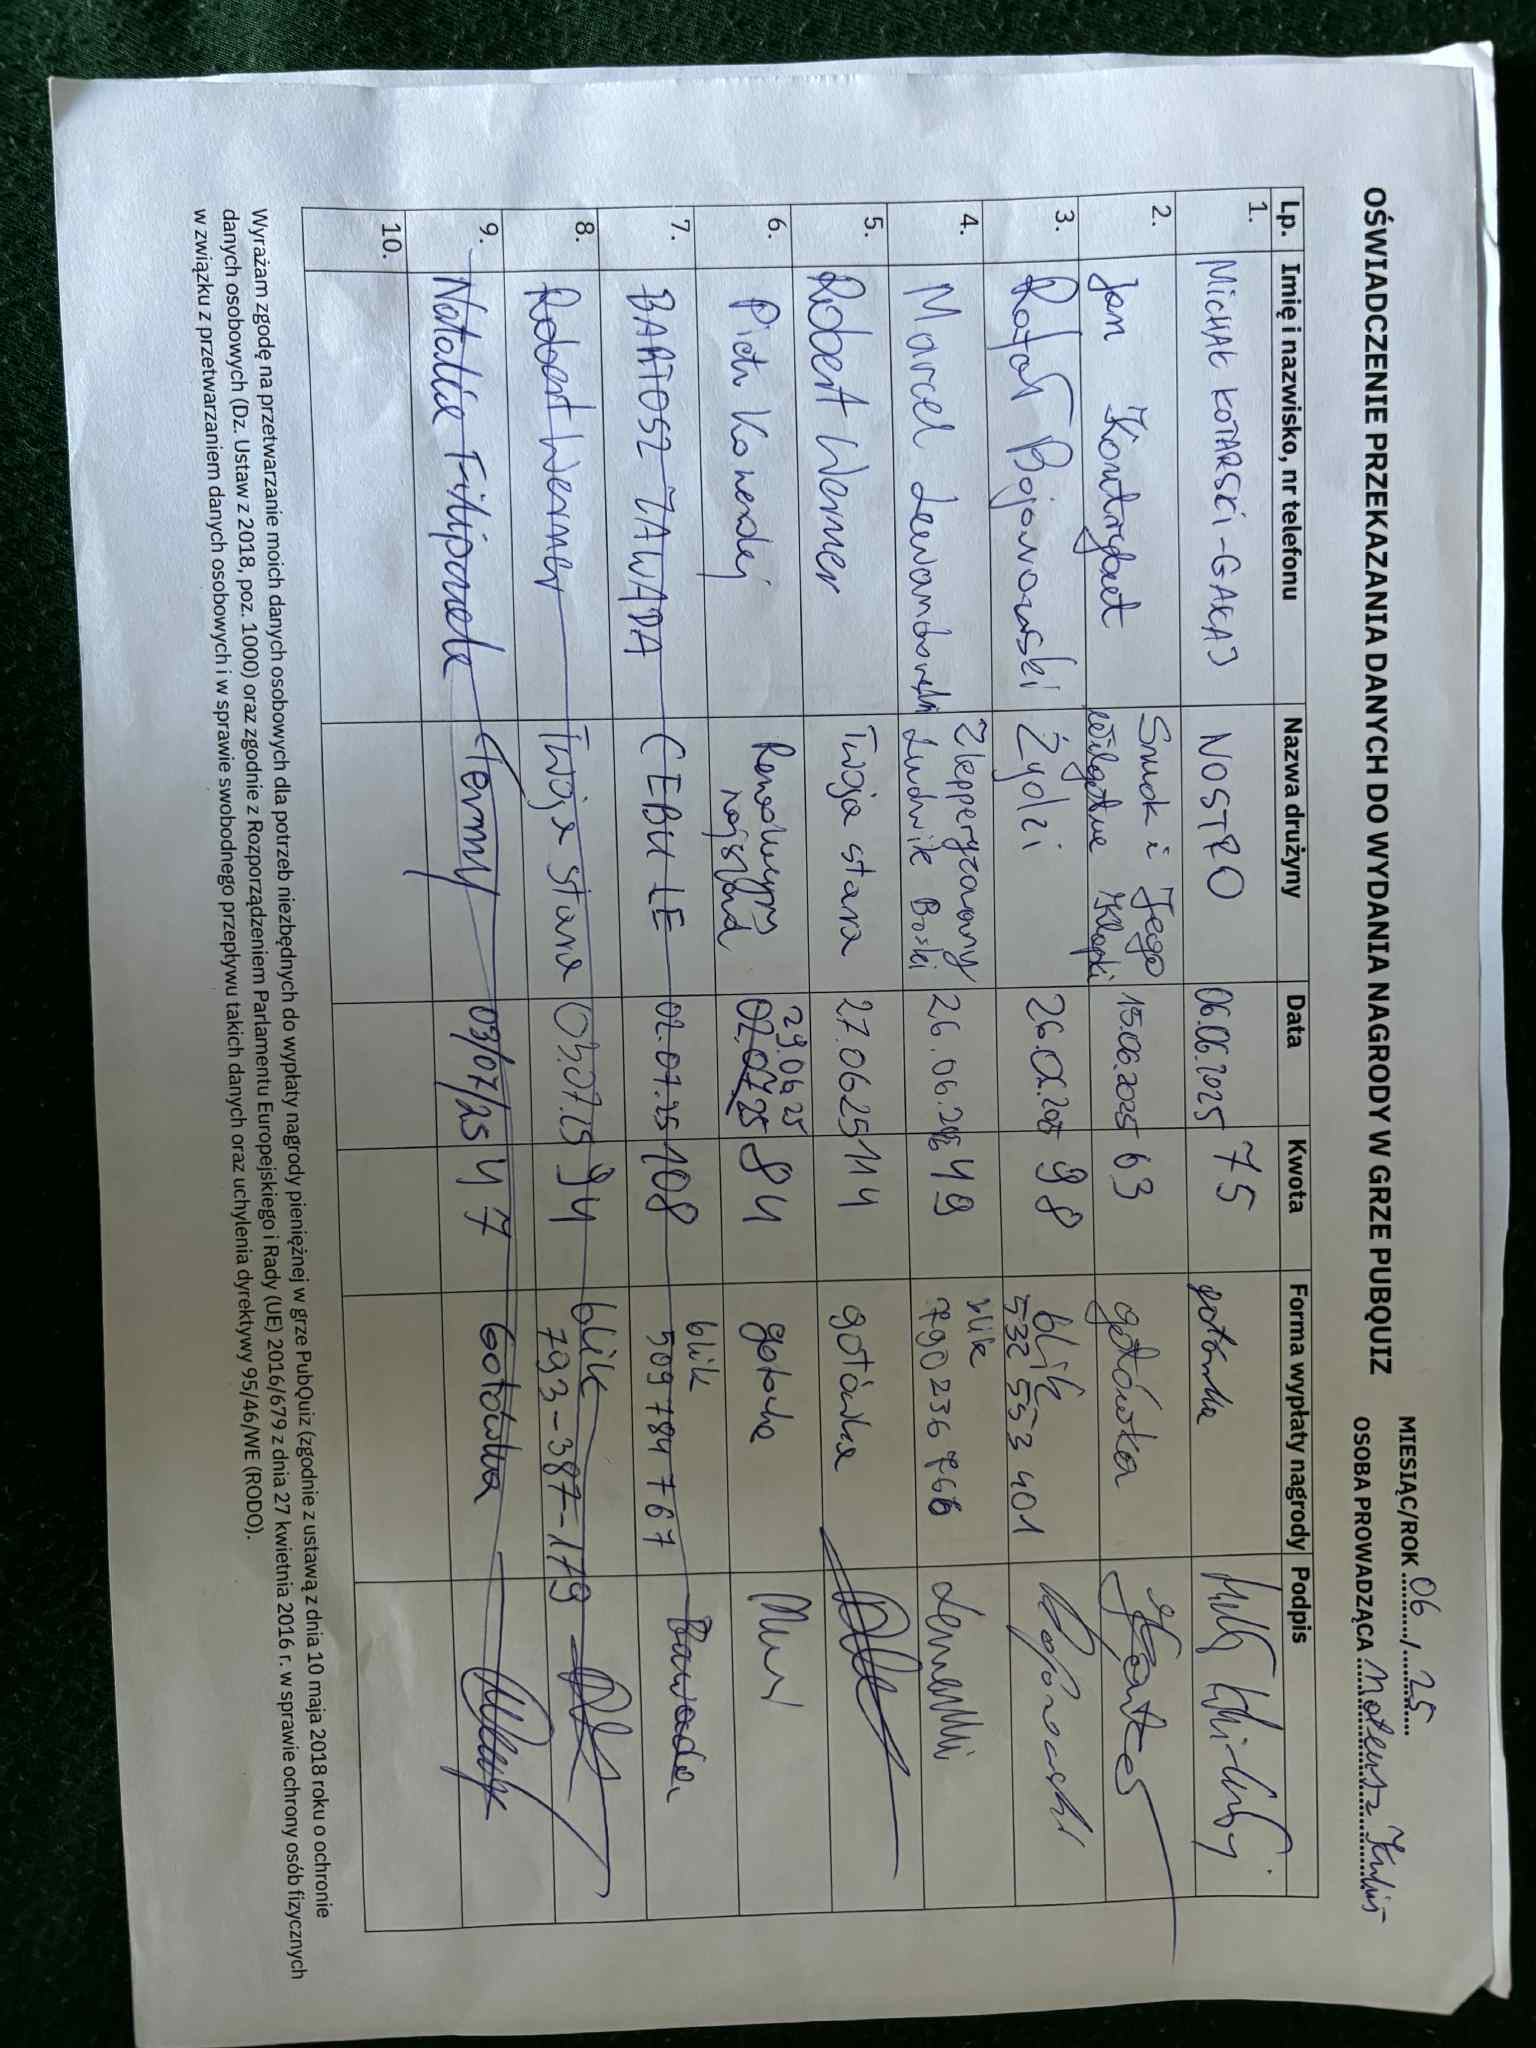 MIESIĄC/ROK 06/25
OŚWIADCZENIE PRZEKAZANIA DANYCH DO WYDANIA NAGRODY W GRZE PUBQUIZ OSOBA PROWADZĄCA Mateusz
Lp. Imię i nazwisko, nr telefonu Nazwa drużyny Data Kwota Forma wypłaty nagrody Podpis
1. MICHAŁ KOTARSKI-GAKAJ NOSTRO 06.06.2025 75 gotówka
2. Jan Kontrybut Smok i Jego
Wilgotne Kłapki 15.06.2025 63 gotówka
3. Rafał Bojanowski Żydzi 26.06.2025 98 blik
532 553 401 Bojanowski
4. Marcel Lewandowski Zlepperyzowany
Ludwik Boski 26.06.2025 49 blik
790 236 766
5. Robert Werner Twoja stara 27.0625 114 gotówka
6. Piotr Konendej
najstand 29.06.25
02.07.25 84 gotówka
7. BARTOSZ ZAWADA CEBULE 02.07.25 108 blik
509 784 767 Bawada
8. Robert Werner Twoja stara 03.07.25 94 blik
793-387-179
9. Natalia Termy 03/07/25 47 Gotówka
10.
Wyrażam zgodę na przetwarzanie moich danych osobowych dla potrzeb niezbędnych do wypłaty nagrody pieniężnej w grze PubQuiz (zgodnie z ustawą z dnia 10 maja 2018 roku o ochronie
danych osobowych (Dz. Ustaw z 2018, poz. 1000) oraz zgodnie z Rozporządzeniem Parlamentu Europejskiego i Rady (UE) 2016/679 z dnia 27 kwietnia 2016 r. w sprawie ochrony osób fizycznych
w związku z przetwarzaniem danych osobowych i w sprawie swobodnego przepływu takich danych oraz uchylenia dyrektywy 95/46/WE (RODO).